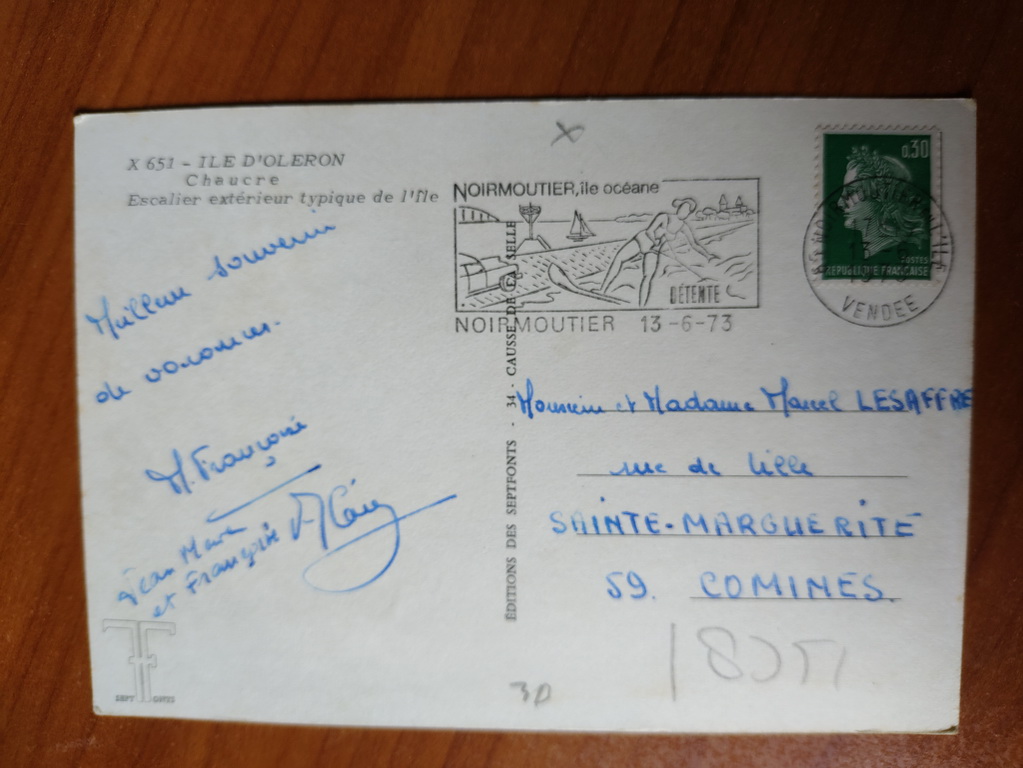 X 651 - ILE D'OLERON
Chaucre
Escalier extérieur typique de l'île
Meilleur souvenir
de vacances.
M. Françoise
Jean Marc
et Françoise
NOIRMOUTIER, île océane
DÉTENTE
NOIRMOUTIER 13-6-73
0,30
POSTES
REPUBLIQUE FRANÇAISE
VENDEE
ÉDITIONS DES SEPTFONTS - 34 - CAUSSE DE LA SELLE
Monsieur et Madame Marcel LESAFFRE
rue de Lille
SAINTE-MARGUERITE
59. COMINES.
SEPT FONTS
X